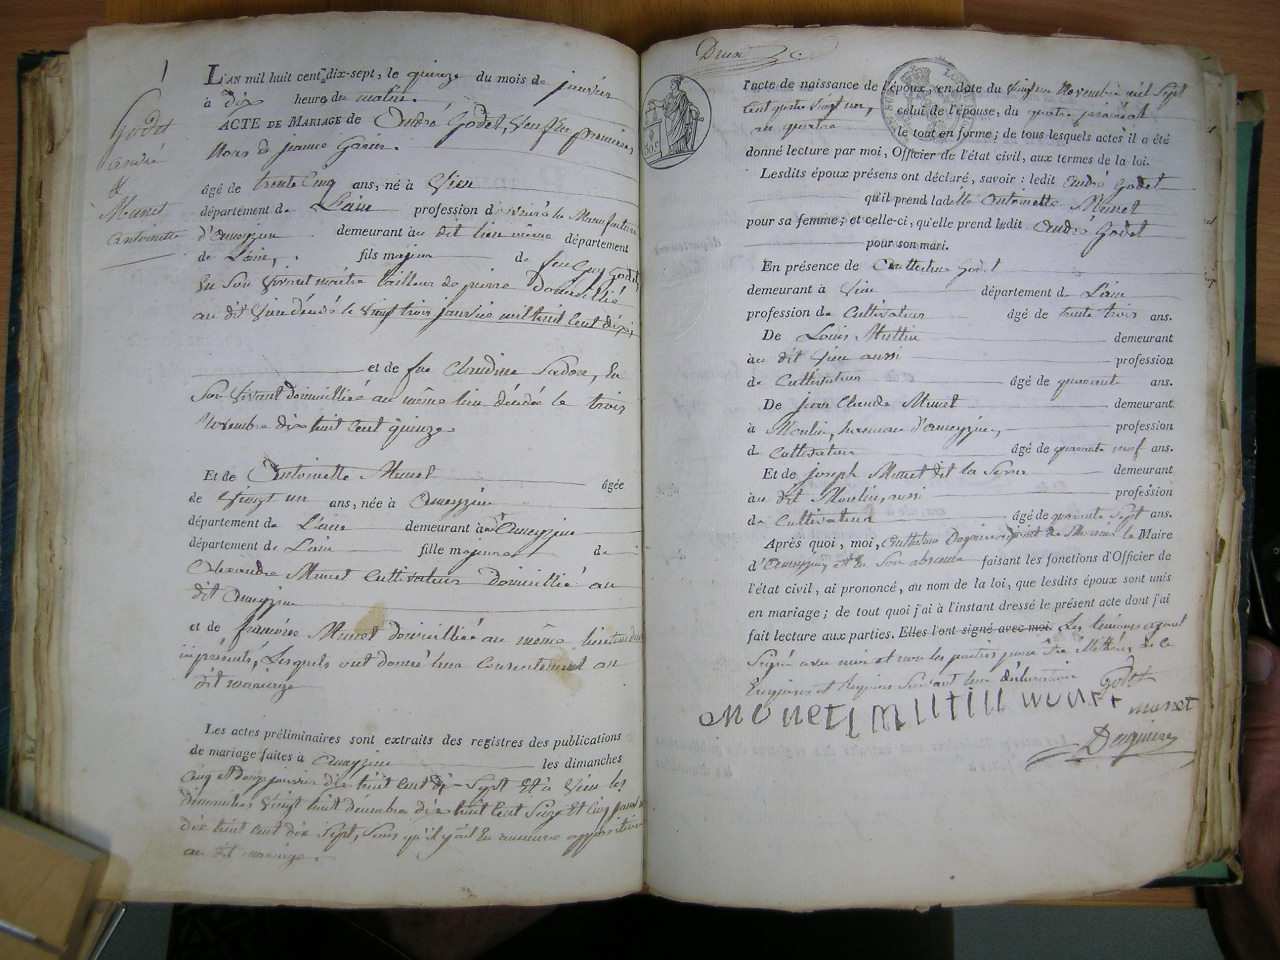 1
Godet
andré
&
Munet
antoinette
L'AN mil huit cent dix-sept, le quinze du mois de janvier
à dix heures du matin.
ACTE DE MARIAGE de André Godet, Veuf en premieres
Nors de jeanne
âgé de trente cinq ans, né à Vieu
département de L'ain profession d la Manufacture
d'ameyzieu demeurant au dit lieu même département
de L'ain, fils majeur de feu Guy Godet,
En Son Vivant maitre tailleur de pierre Domicilié
au dit Vieu décédé le Vingt trois janvier mil huit cent dix,
et de feue Claudine, En
Son Vivant domiciliée au même lieu décédée le trois
Novembre dix huit cent quinze.
Et de Antoinette Munet âgée
de Vingt un ans, née à Ameyzieu
département de L'ain demeurant à Ameyzieu
département de L'ain fille majeure de
Alexandre Munet Cultivateur Domicilié au
dit Ameyzieu
et de Munet domiciliée au même lieu
ici présents, Lesquels ont donné leur Consentement au
dit mariage
Les actes préliminaires sont extraits des registres des publications
de mariage faites à Ameyzieu les dimanches
Cinq et Douze janvier dix huit cent dix-Sept Et à Vieu les
dimanches Vingt huit décembre dix huit cent Seize Et Cinq janvier
dix huit cent dix Sept, Sans qu'il y ait Eu aucune opposition
au dit mariage.
Deux
l'acte de naissance de l'époux, en date du Vingt un Novembre mil Sept
Cent quatre Vingt un, celui de l'épouse, du quatre prairial
an quatre le tout en forme; de tous lesquels actes il a été
donné lecture par moi, Officier de l'état civil, aux termes de la loi.
Lesdits époux présens ont déclaré, savoir: ledit André Godet
qu'il prend ladite Antoinette Munet
pour sa femme; et celle-ci, qu'elle prend ledit André Godet
pour son mari.
En présence de Anthelme Godet
demeurant à Vieu département de L'ain
profession de Cultivateur âgé de trente trois ans.
De Louis demeurant
au dit Vieu aussi profession
de Cultivateur âgé de quarante ans.
De Jean Claude Munet demeurant
à Moulin, hameau d'ameyzieu, profession
de Cultivateur âgé de quarante neuf ans.
Et de joseph Munet dit la Serve demeurant
au dit Moulin, aussi profession
de Cultivateur âgé de quarante Sept ans.
Après quoi, moi, Anthelme adjoint de Monsieur le Maire
d'Ameyzieu, et en Son absence faisant les fonctions d'Officier de
l'état civil, ai prononcé, au nom de la loi, que lesdits époux sont unis
en mariage; de tout quoi j'ai à l'instant dressé le présent acte dont j'ai
fait lecture aux parties. Elles l'ont signé avec moi. Les temoins ayant
Signé avec moi et non les parties pour être illitérés de ce
Enquises et Requises Suivant leur déclaration Godet
munet